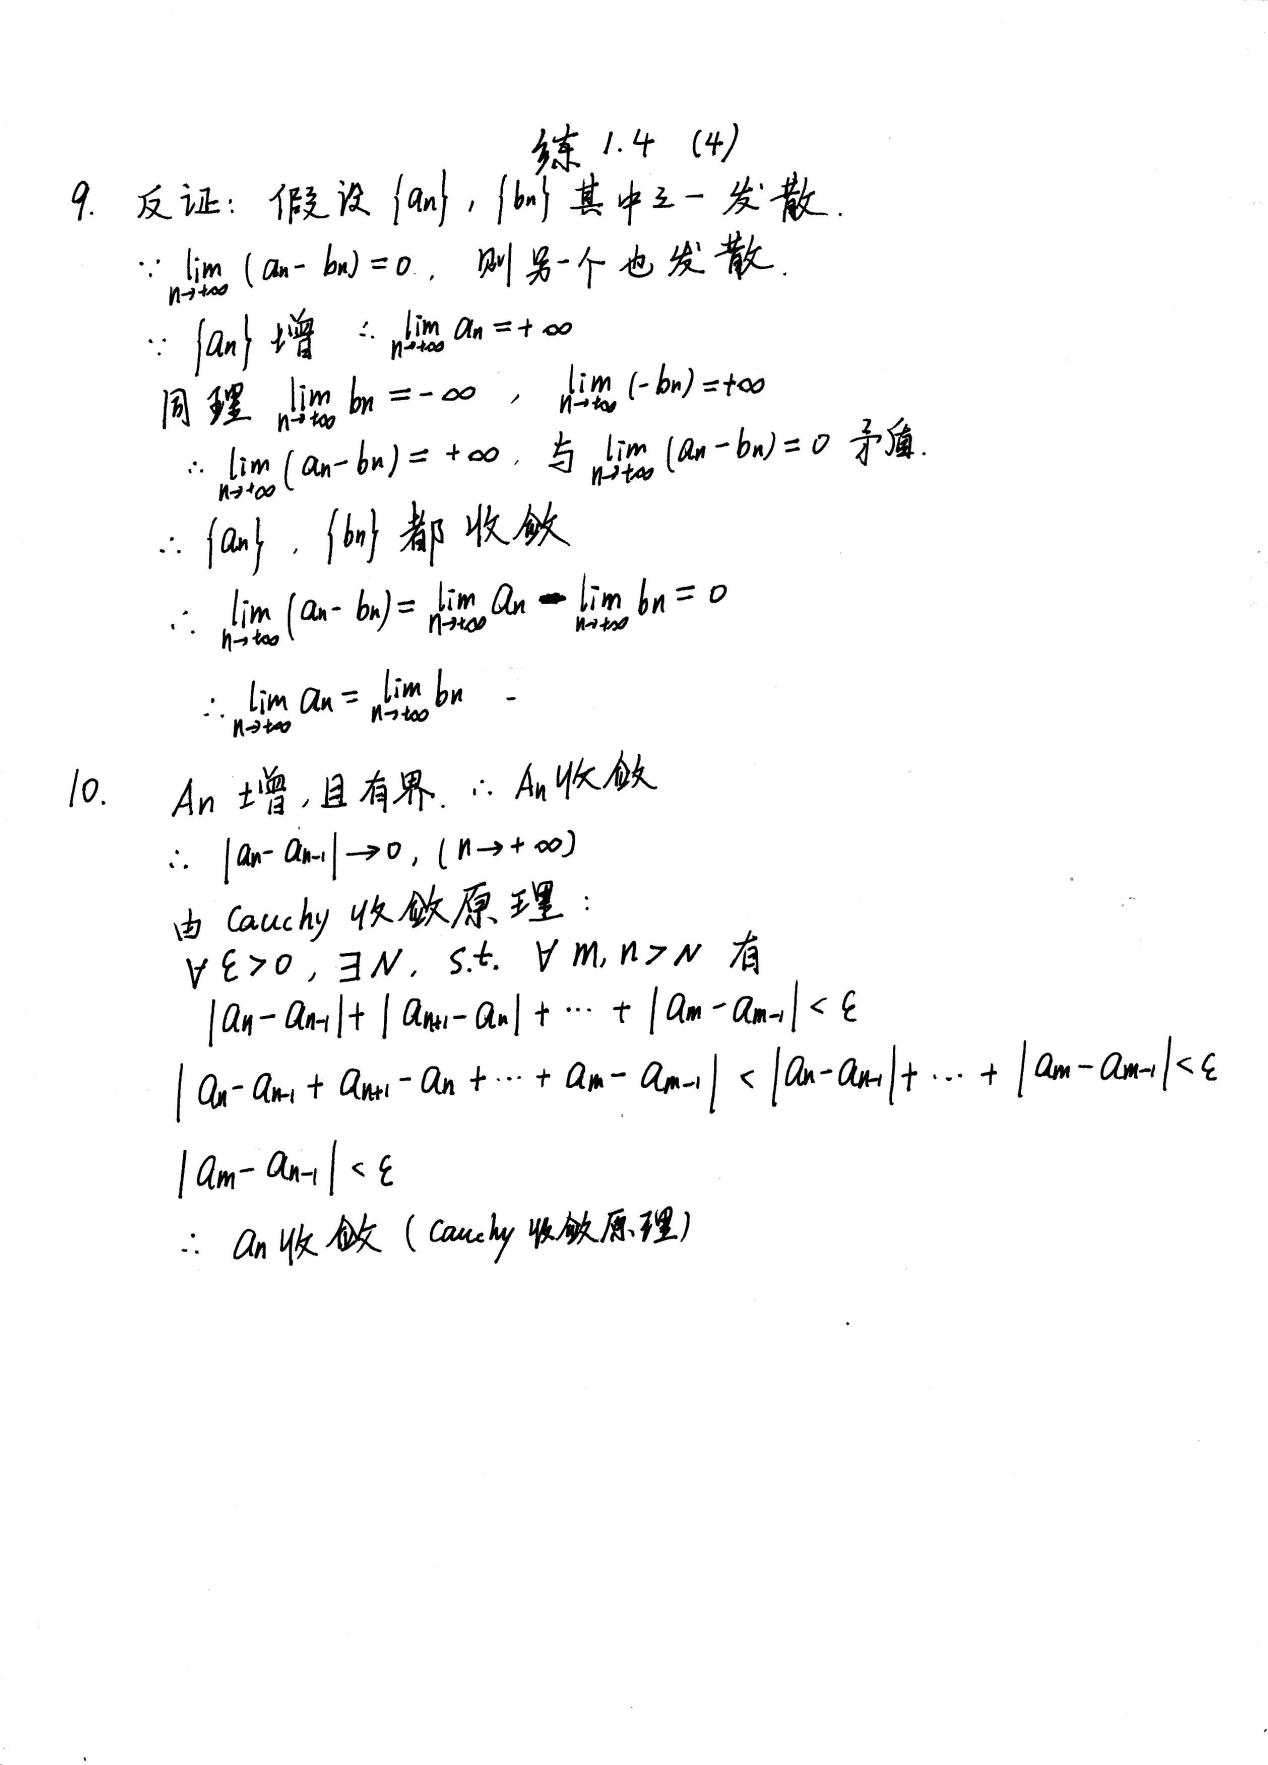 练 1.4 (4)
9. 反证: 假设 {an}, {bn} 其中之一发散.
∵ lim n→+∞ (an - bn) = 0, 则另一个也发散.
∵ {an} 增 ∴ lim n→+∞ an = +∞
同理 lim n→+∞ bn = -∞, lim n→+∞ (-bn) = +∞
∴ lim n→+∞ (an - bn) = +∞, 与 lim n→+∞ (an - bn) = 0 矛盾.
∴ {an}, {bn} 都收敛
∴ lim n→+∞ (an - bn) = lim n→+∞ an - lim n→+∞ bn = 0
∴ lim n→+∞ an = lim n→+∞ bn
10. An 增, 且有界. ∴ An 收敛
∴ |an - an-1| → 0, (n → +∞)
由 Cauchy 收敛原理:
∀ ε > 0, ∃ N, s.t. ∀ m, n > N 有
|an - an-1| + |an+1 - an| + ⋯ + |am - am-1| < ε
|an - an-1 + an+1 - an + ⋯ + am - am-1| < |an - an-1| + ⋯ + |am - am-1| < ε
|am - an-1| < ε
∴ an 收敛 (Cauchy 收敛原理)